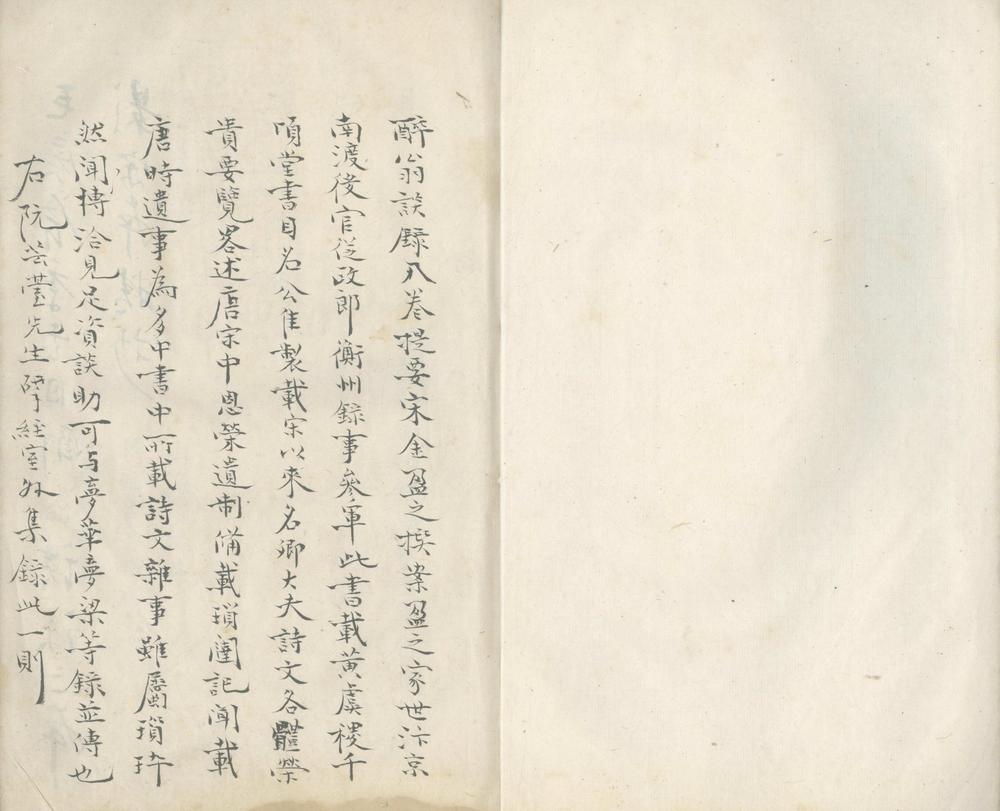 醉翁談錄八卷提要宋金盈之撰案盈之家世汴京
南渡後官從政郎衡州錄事參軍此書載黃虞稷千
頃堂書目名公佳製載宋以來名卿大夫詩文各體榮
貴要覽畧述唐宋中恩榮遺制備載瑣闈記聞載
唐時遺事為多中書中所載詩文雜事雖屬瑣碎
然聞摶洽見足資談助可与夢華夢梁等錄並傳也
右阮芸臺先生揅經室外集錄此一則